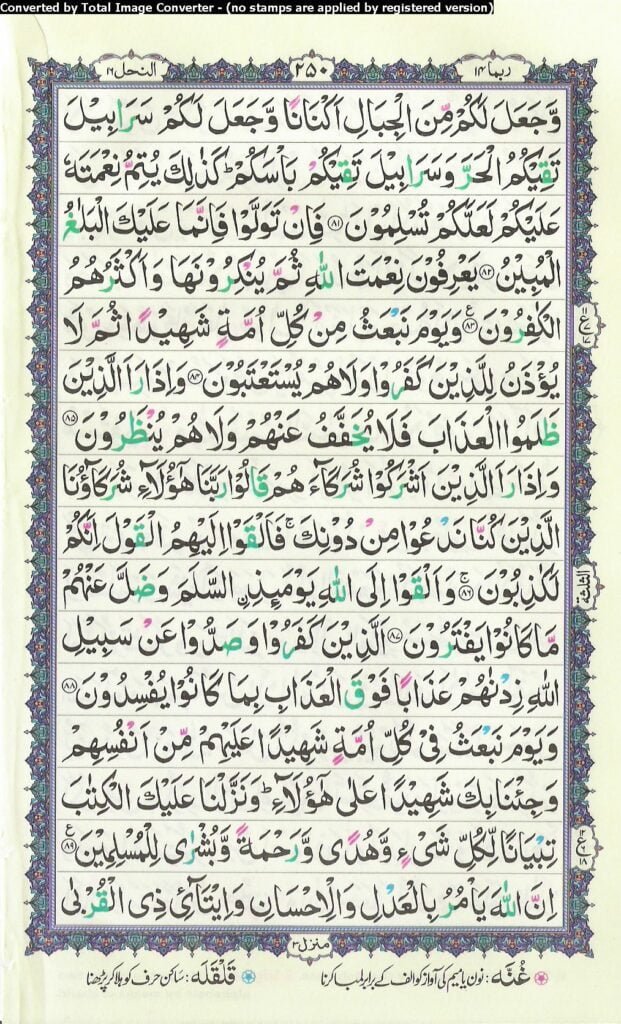 Converted by Total Image Converter - (no stamps are applied by registered version)
ربما ١٤
٢٥٠
النحل ١٦
وَّجَعَلَ لَكُمْ مِّنَ الْجِبَالِ اَكْنَانًا وَّجَعَلَ لَكُمْ سَرَابِيْلَ
تَقِيْكُمُ الْحَرَّ وَسَرَابِيْلَ تَقِيْكُمْ بَاْسَكُمْ ؕ كَذٰلِكَ يُتِمُّ نِعْمَتَهٗ
عَلَيْكُمْ لَعَلَّكُمْ تُسْلِمُوْنَ ﴿٨١﴾ فَاِنْ تَوَلَّوْا فَاِنَّمَا عَلَيْكَ الْبَلٰغُ
الْمُبِيْنُ ﴿٨٢﴾ يَعْرِفُوْنَ نِعْمَتَ اللّٰهِ ثُمَّ يُنْكِرُوْنَهَا وَاَكْثَرُهُمُ
الْكٰفِرُوْنَ ﴿٨٣﴾ ع وَيَوْمَ نَبْعَثُ مِنْ كُلِّ اُمَّةٍ شَهِيْدًا ثُمَّ لَا
يُؤْذَنُ لِلَّذِيْنَ كَفَرُوْا وَلَا هُمْ يُسْتَعْتَبُوْنَ ﴿٨٤﴾ وَاِذَا رَاَ الَّذِيْنَ
ظَلَمُوا الْعَذَابَ فَلَا يُخَفَّفُ عَنْهُمْ وَلَا هُمْ يُنْظَرُوْنَ ﴿٨٥﴾
وَاِذَا رَاَ الَّذِيْنَ اَشْرَكُوْا شُرَكَآءَهُمْ قَالُوْا رَبَّنَا هٰٓؤُلَآءِ شُرَكَآؤُنَا
الَّذِيْنَ كُنَّا نَدْعُوْا مِنْ دُوْنِكَ ۚ فَاَلْقَوْا اِلَيْهِمُ الْقَوْلَ اِنَّكُمْ
لَكٰذِبُوْنَ ﴿٨٦﴾ ۚ وَاَلْقَوْا اِلَى اللّٰهِ يَوْمَئِذِ ِۨالسَّلَمَ وَضَلَّ عَنْهُمْ
مَّا كَانُوْا يَفْتَرُوْنَ ﴿٨٧﴾ اَلَّذِيْنَ كَفَرُوْا وَصَدُّوْا عَنْ سَبِيْلِ
اللّٰهِ زِدْنٰهُمْ عَذَابًا فَوْقَ الْعَذَابِ بِمَا كَانُوْا يُفْسِدُوْنَ ﴿٨٨﴾
وَيَوْمَ نَبْعَثُ فِىْ كُلِّ اُمَّةٍ شَهِيْدًا عَلَيْهِمْ مِّنْ اَنْفُسِهِمْ
وَجِئْنَا بِكَ شَهِيْدًا عَلٰى هٰٓؤُلَآءِ ؕ وَنَزَّلْنَا عَلَيْكَ الْكِتٰبَ
تِبْيَانًا لِّكُلِّ شَىْءٍ وَّهُدًى وَّرَحْمَةً وَّبُشْرٰى لِلْمُسْلِمِيْنَ ﴿٨٩﴾ ع
اِنَّ اللّٰهَ يَاْمُرُ بِالْعَدْلِ وَالْاِحْسَانِ وَاِيْتَآئِ ذِى الْقُرْبٰى
الثلثة
منزل ٣
غُنَّه: نون یا میم کی آواز کو الف کے برابر لمبا کرنا
قَلْقَلَه: ساکن حرف کو ہلا کر پڑھنا